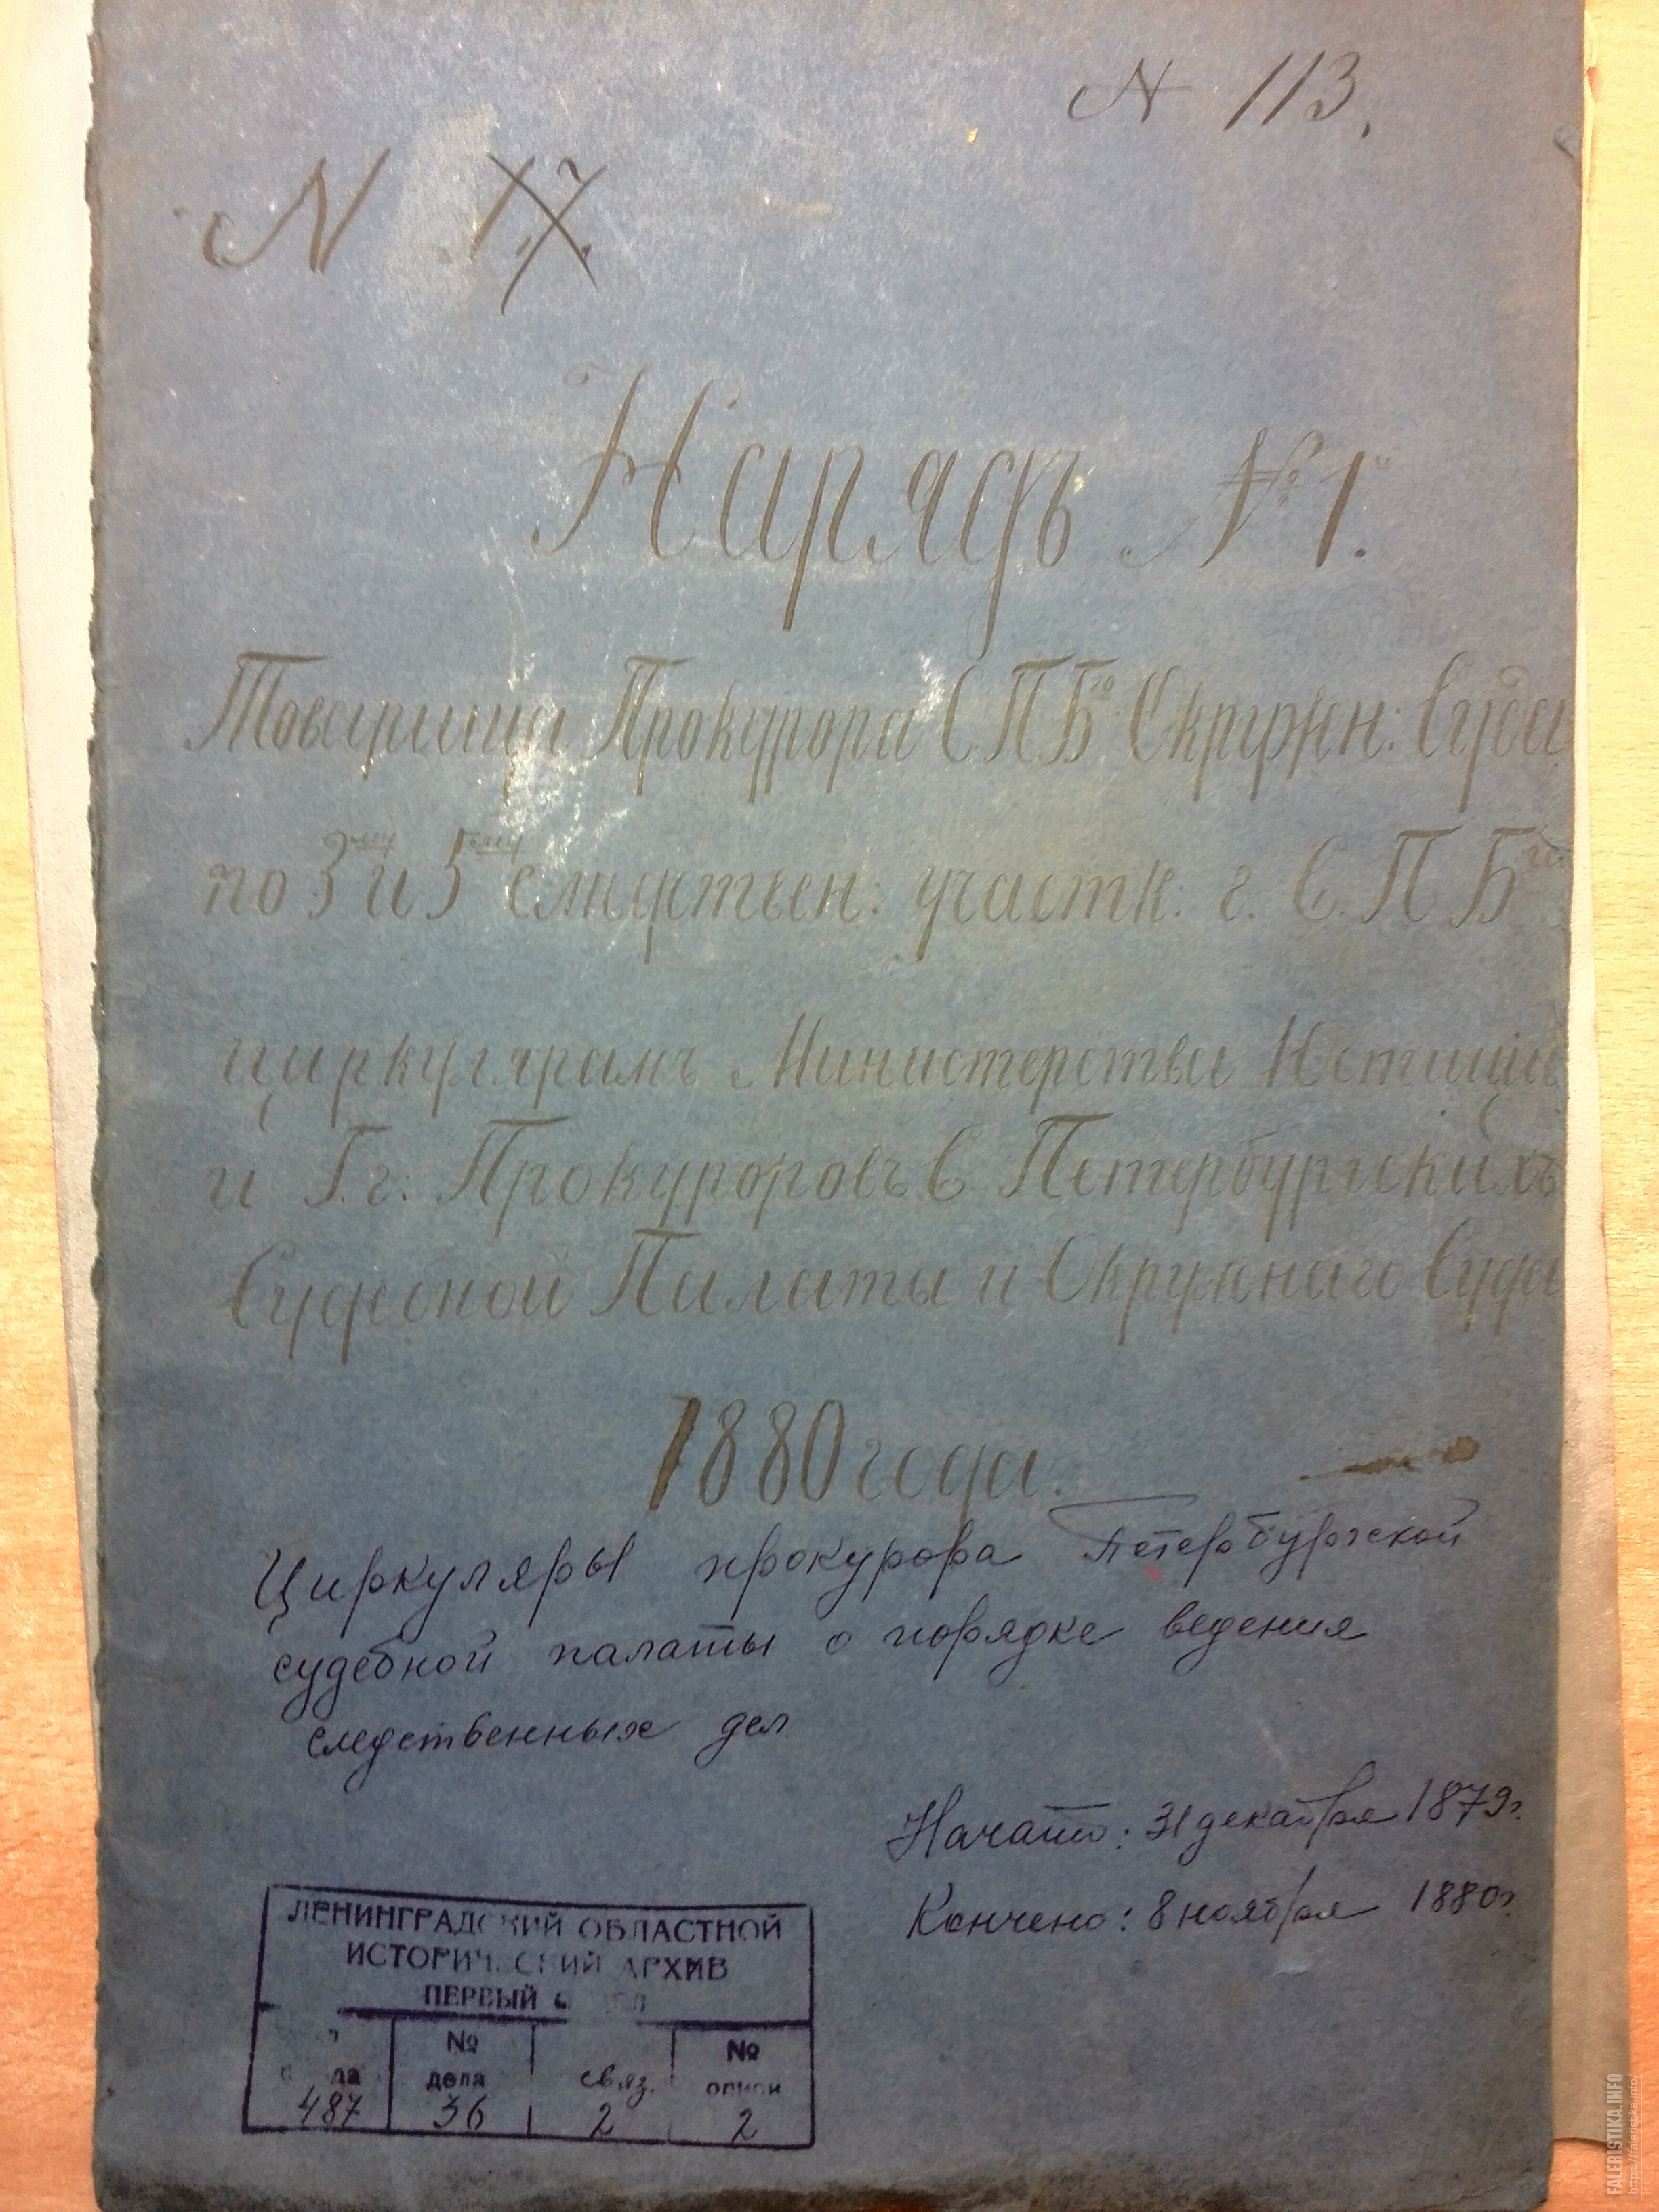 N 113.
N
Нарядъ № 1.
Товарища Прокурора СПБ⁰ Окружн: Суда
по 3му и 5му участк: г. С.П Б
циркулярамъ Министерства Юстиціи
и Г.г: Прокуроровъ С. Петербургскихъ
Судебной Палаты и Окружнаго Суда
1880 года.
Циркуляры прокурора Петербургской
судебной палаты о порядке ведения
следственных дел
Начато: 31 декабря 1879г.
Кончено: 8 ноября 1880г.
ЛЕНИНГРАДСКИЙ ОБЛАСТНОЙ
ИСТОРИЧЕСКИЙ АРХИВ
ПЕРВЫЙ
№ №
дела связ. описи
487 36 2 2
FALERISTIKA.INFO
https://faleristika.info/